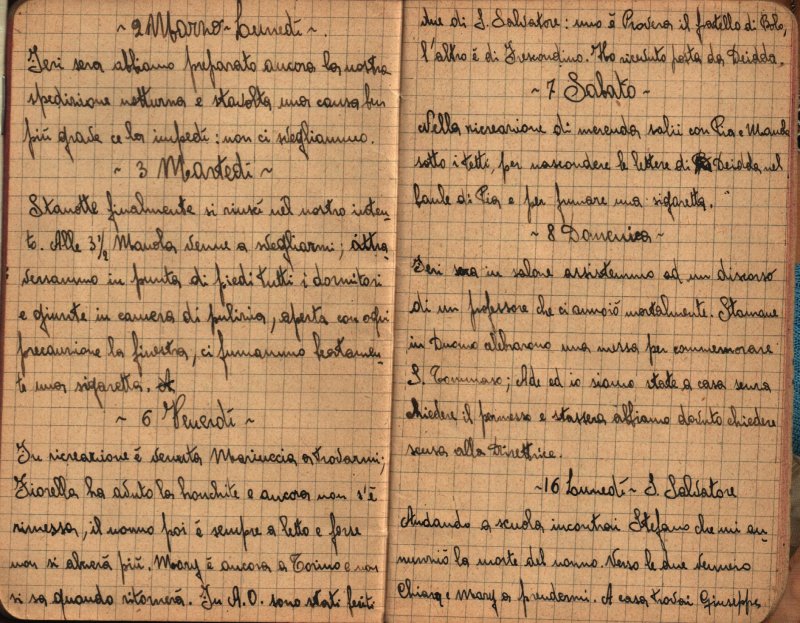 ~ 2 Marzo - Lunedì ~.
Ieri sera abbiamo preparato ancora la nostra
spedizione notturna e stavolta una causa ben
più grave ce la impedì: non ci svegliammo.
~ 3 Martedì ~
Stanotte finalmente si riuscì nel nostro inten-
to. Alle 3½ Manola venne a svegliarmi; attra-
versammo in punta di piedi tutti i dormitori
e giunte in camera di pulizia, aperta con ogni
precauzione la finestra, ci fumammo beatamen-
te una sigaretta.
~ 6 Venerdì ~
In ricreazione è venuta Mariuccia a trovarmi;
Fiorella ha avuto la bronchite e ancora non s'è
rimessa, il nonno poi è sempre a letto e forse
non si alzerà più. Mary è ancora a Torino e non
si sa quando ritornerà. In A.O. sono stati feriti
due di S. Salvatore: uno è Provera il fratello di Bolo,
l'altro è di Frescondino. Ho ricevuto posta da Deidda.
~ 7 Sabato ~
Nella ricreazione di merenda salii con Pia e Manola
sotto i tetti, per nascondere le lettere di Deidda nel
baule di Pia e per fumare una sigaretta.
~ 8 Domenica ~
Ieri sera in salone assistemmo ad un discorso
di un professore che ci annoiò mortalmente. Stamane
in Duomo celebrarono una messa per commemorare
S. Tommaso; Ade ed io siamo state a casa senza
chiedere il permesso e stassera abbiamo dovuto chiedere
scusa alla Direttrice.
~ 16 Lunedì ~ S. Salvatore
Andando a scuola incontrai Stefano che mi an-
nunziò la morte del nonno. Verso le due vennero
Chiara e Mary a prendermi. A casa trovai Giuseppe,